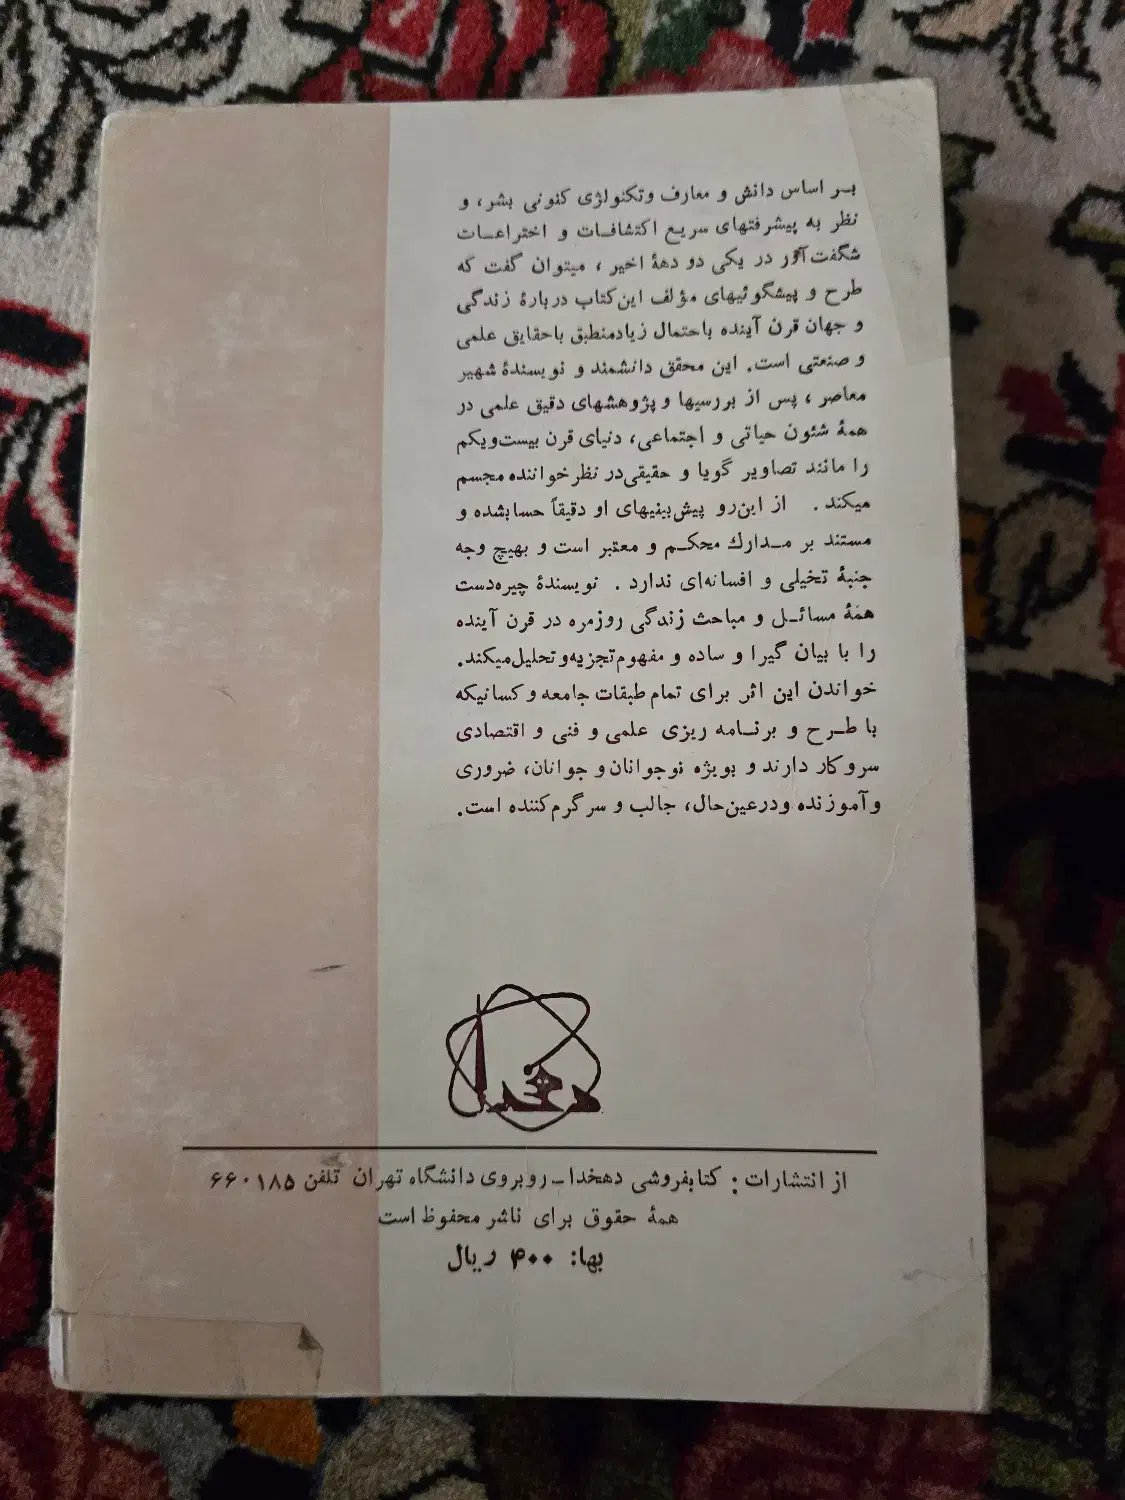 بـر اساس دانش و معارف وتکنولژی کنونی بشر، و
نظر به پیشرفتهای سریع اکتشافـات و اختراعـات
شگفت‌آور در یکی دو دههٔ اخیر ، میتوان گفت که
طرح و پیشگوئیهای مؤلف این‌کتاب دربارهٔ زندگی
و جهان قرن آینده باحتمال زیادمنطبق باحقایق علمی
و صنعتی است. این محقق دانشمند و نویسندهٔ شهیر
معاصر ، پس از بررسیها و پژوهشهای دقیق علمی در
همهٔ شئون حیاتی و اجتماعی، دنیای قرن بیست‌ویکم
را مانند تصاویر گویا و حقیقی‌در نظرخواننده مجسم
میکند . از این‌رو پیش‌بینیهای او دقیقاً حسابشده و
مستند بر مـدارك محکـم و معتبر است و بهیچ وجه
جنبهٔ تخیلی و افسانه‌ای ندارد . نویسندهٔ چیره‌دست
همهٔ مسائـل و مباحث زندگی روزمره در قرن آینده
را با بیان گیرا و ساده و مفهوم‌تجزیه‌وتحلیل‌میکند.
خواندن این اثر برای تمام طبقات جامعه وکسانیکه
با طـرح و برنـامه ریزی علمی و فنی و اقتصادی
سروکار دارند و بویژه نوجوانان‌و جوانان، ضروری
وآموزنده ودرعین‌حال، جالب و سرگرم‌کننده است.
دهخدا
از انتشارات : کتابفروشی دهخدا ـ روبروی دانشگاه تهران تلفن ۶۶۰۱۸۵
همهٔ حقوق برای ناشر محفوظ است
بها: ۴۰۰ ریال